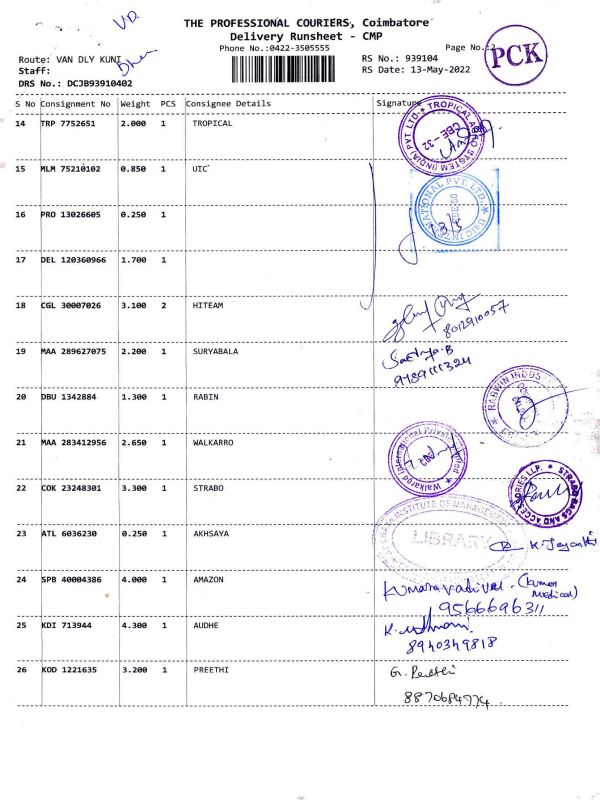 THE PROFESSIONAL COURIERS, Coimbatore
Delivery Runsheet - CMP
Phone No.:0422-3505555
Page No.:2
PCK
Route: VAN DLY KUNI
RS No.: 939104
Staff:
RS Date: 13-May-2022
DRS No.: DCJB93910402
S No Consignment No Weight PCS Consignee Details Signature
14 TRP 7752651 2.000 1 TROPICAL
TROPICAL AGRO SYSTEM (INDIA) PVT LTD
CBE-32
15 MLM 75210102 0.850 1 UIC
16 PRO 13026605 0.250 1
17 DEL 120360966 1.700 1
18 CGL 30007026 3.100 2 HITEAM
8012910057
19 MAA 289627075 2.200 1 SURYABALA
Sathya.B
9789111324
20 DBU 1342884 1.300 1 RABIN
21 MAA 283412956 2.650 1 WALKARRO
Walkaroo International Private Limited
22 COK 23248301 3.300 1 STRABO
STRABO BAGS AND ACCESSORIES LLP.
23 ATL 6036230 0.250 1 AKHSAYA
INSTITUTE OF MANAGEMENT
LIBRARY
K. Jayanthi
24 SPB 40004386 4.000 1 AMAZON
Kumaravadivel (Kumar Medical)
9566696311
25 KDI 713944 4.300 1 AUDHE
8940349818
26 KOD 1221635 3.200 1 PREETHI
G. Preethi
8870684774